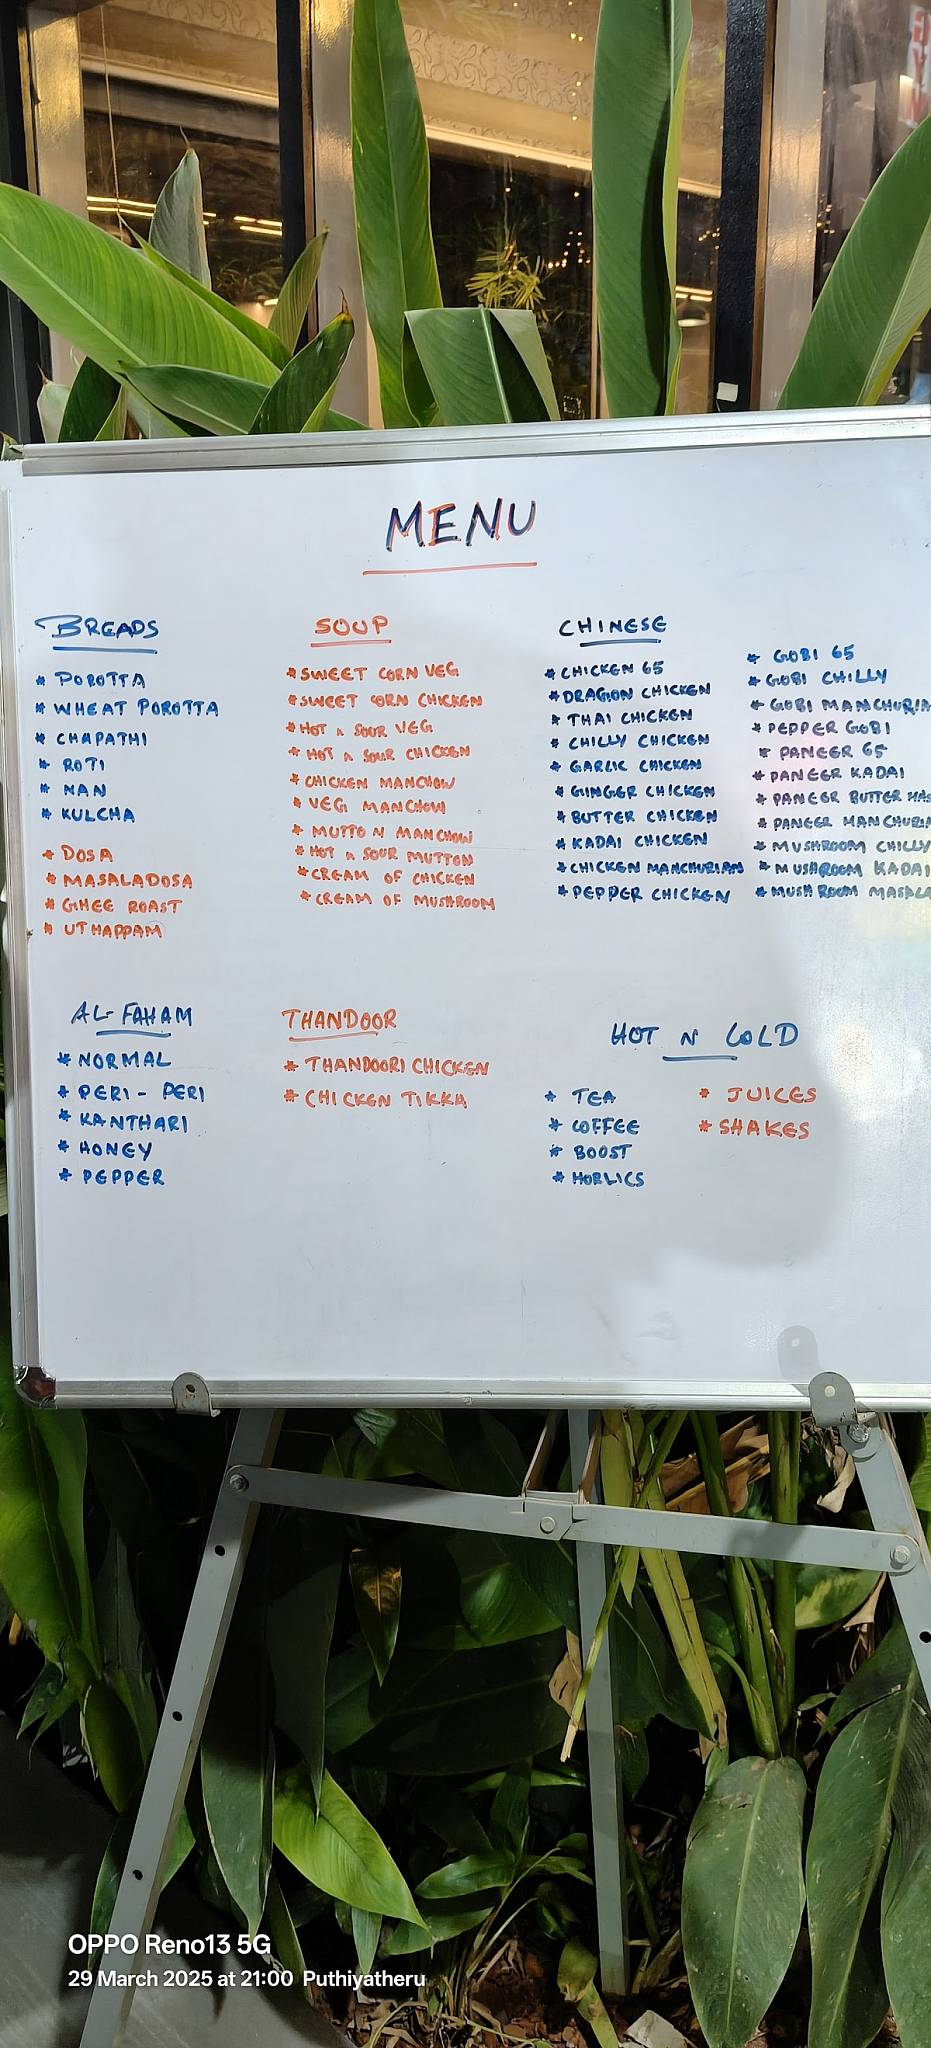 MENU
BREADS
* POROTTA
* WHEAT POROTTA
* CHAPATHI
* ROTI
* NAN
* KULCHA
* DOSA
* MASALADOSA
* GHEE ROAST
* UTHAPPAM
SOUP
* SWEET CORN VEG
* SWEET CORN CHICKEN
* HOT N SOUR VEG
* HOT N SOUR CHICKEN
* CHICKEN MANCHOW
* VEG MANCHOW
* MUTTON MANCHOW
* HOT N SOUR MUTTON
* CREAM OF CHICKEN
* CREAM OF MUSHROOM
CHINESE
* CHICKEN 65
* DRAGON CHICKEN
* THAI CHICKEN
* CHILLY CHICKEN
* GARLIC CHICKEN
* GINGER CHICKEN
* BUTTER CHICKEN
* KADAI CHICKEN
* CHICKEN MANCHURIAN
* PEPPER CHICKEN
* GOBI 65
* GOBI CHILLY
* GOBI MANCHURIA
* PEPPER GOBI
* PANEER 65
* PANEER KADAI
* PANEER BUTTER MAS
* PANEER MANCHURIA
* MUSHROOM CHILLY
* MUSHROOM KADAI
* MUSHROOM MASALA
AL-FAHAM
* NORMAL
* PERI-PERI
* KANTHARI
* HONEY
* PEPPER
THANDOOR
* THANDOORI CHICKEN
* CHICKEN TIKKA
HOT N COLD
* TEA
* COFFEE
* BOOST
* HORLICS
* JUICES
* SHAKES
OPPO Reno13 5G
29 March 2025 at 21:00 Puthiyatheru